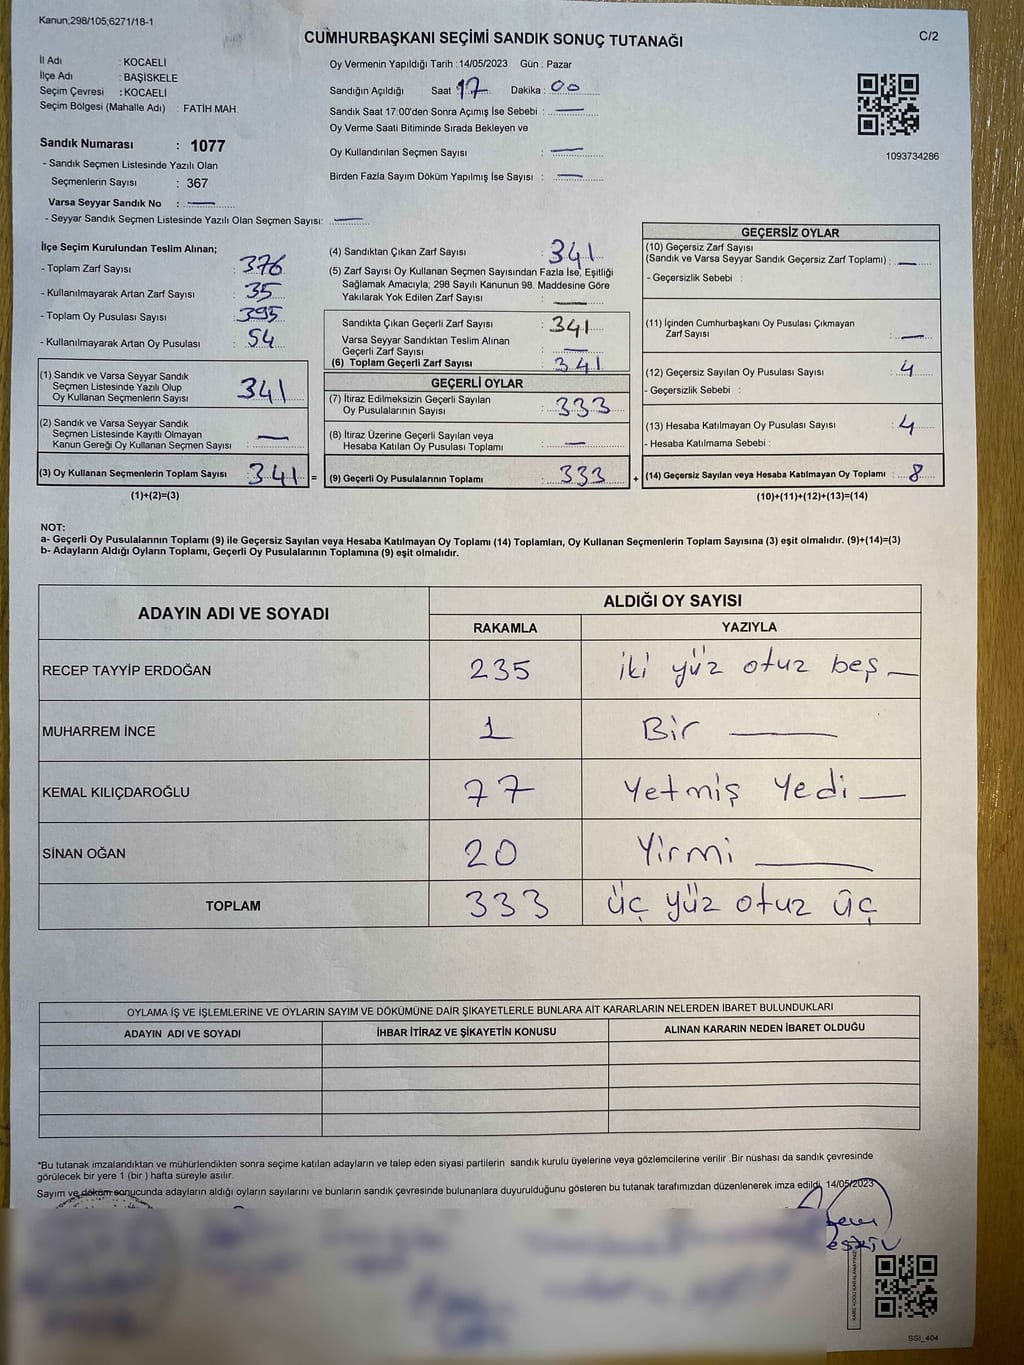 Kanun,298/105;6271/18-1
CUMHURBAŞKANI SEÇİMİ SANDIK SONUÇ TUTANAĞI
C/2
İl Adı : KOCAELİ
İlçe Adı : BAŞİSKELE
Seçim Çevresi : KOCAELİ
Seçim Bölgesi (Mahalle Adı) : FATİH MAH.
Oy Vermenin Yapıldığı Tarih :14/05/2023 Gün : Pazar
Sandığın Açıldığı Saat 17 Dakika : 00
Sandık Saat 17:00'den Sonra Açımış İse Sebebi : —
Oy Verme Saati Bitiminde Sırada Bekleyen ve
Oy Kullandırılan Seçmen Sayısı : —
Birden Fazla Sayım Döküm Yapılmış İse Sayısı : —
1093734286
Sandık Numarası : 1077
- Sandık Seçmen Listesinde Yazılı Olan
Seçmenlerin Sayısı : 367
Varsa Seyyar Sandık No : —
- Seyyar Sandık Seçmen Listesinde Yazılı Olan Seçmen Sayısı: —
İlçe Seçim Kurulundan Teslim Alınan;
- Toplam Zarf Sayısı : 376
- Kullanılmayarak Artan Zarf Sayısı : 35
- Toplam Oy Pusulası Sayısı : 395
- Kullanılmayarak Artan Oy Pusulası : 54
(1) Sandık ve Varsa Seyyar Sandık
Seçmen Listesinde Yazılı Olup
Oy Kullanan Seçmenlerin Sayısı : 341
(2) Sandık ve Varsa Seyyar Sandık
Seçmen Listesinde Kayıtlı Olmayan
Kanun Gereği Oy Kullanan Seçmen Sayısı : —
(3) Oy Kullanan Seçmenlerin Toplam Sayısı 341 =
(1)+(2)=(3)
(4) Sandıktan Çıkan Zarf Sayısı : 341
(5) Zarf Sayısı Oy Kullanan Seçmen Sayısından Fazla İse, Eşitliği
Sağlamak Amacıyla; 298 Sayılı Kanunun 98. Maddesine Göre
Yakılarak Yok Edilen Zarf Sayısı : —
Sandıkta Çıkan Geçerli Zarf Sayısı : 341
Varsa Seyyar Sandıktan Teslim Alınan
Geçerli Zarf Sayısı : —
(6) Toplam Geçerli Zarf Sayısı : 341
GEÇERLİ OYLAR
(7) İtiraz Edilmeksizin Geçerli Sayılan
Oy Pusulalarının Sayısı : 333
(8) İtiraz Üzerine Geçerli Sayılan veya
Hesaba Katılan Oy Pusulası Toplamı : —
(9) Geçerli Oy Pusulalarının Toplamı : 333 +
GEÇERSİZ OYLAR
(10) Geçersiz Zarf Sayısı
(Sandık ve Varsa Seyyar Sandık Geçersiz Zarf Toplamı) : —
- Geçersizlik Sebebi :
(11) İçinden Cumhurbaşkanı Oy Pusulası Çıkmayan
Zarf Sayısı : —
(12) Geçersiz Sayılan Oy Pusulası Sayısı : 4
- Geçersizlik Sebebi :
(13) Hesaba Katılmayan Oy Pusulası Sayısı : 4
- Hesaba Katılmama Sebebi :
(14) Geçersiz Sayılan veya Hesaba Katılmayan Oy Toplamı : 8
(10)+(11)+(12)+(13)=(14)
NOT:
a- Geçerli Oy Pusulalarının Toplamı (9) ile Geçersiz Sayılan veya Hesaba Katılmayan Oy Toplamı (14) Toplamları, Oy Kullanan Seçmenlerin Toplam Sayısına (3) eşit olmalıdır. (9)+(14)=(3)
b- Adayların Aldığı Oyların Toplamı, Geçerli Oy Pusulalarının Toplamına (9) eşit olmalıdır.
ADAYIN ADI VE SOYADI ALDIĞI OY SAYISI
RAKAMLA YAZIYLA
RECEP TAYYİP ERDOĞAN 235 iki yüz otuz beş —
MUHARREM İNCE 1 Bir —
KEMAL KILIÇDAROĞLU 77 Yetmiş Yedi —
SİNAN OĞAN 20 Yirmi —
TOPLAM 333 üç yüz otuz üç
OYLAMA İŞ VE İŞLEMLERİNE VE OYLARIN SAYIM VE DÖKÜMÜNE DAİR ŞİKAYETLERLE BUNLARA AİT KARARLARIN NELERDEN İBARET BULUNDUKLARI
ADAYIN ADI VE SOYADI İHBAR İTİRAZ VE ŞİKAYETİN KONUSU ALINAN KARARIN NEDEN İBARET OLDUĞU
*Bu tutanak imzalandıktan ve mühürlendikten sonra seçime katılan adayların ve talep eden siyasi partilerin sandık kurulu üyelerine veya gözlemcilerine verilir .Bir nüshası da sandık çevresinde
görülecek bir yere 1 (bir ) hafta süreyle asılır.
Sayım ve döküm sonucunda adayların aldığı oyların sayılarını ve bunların sandık çevresinde bulunanlara duyurulduğunu gösteren bu tutanak tarafımızdan düzenlenerek imza edildi. 14/05/2023
SSI_404